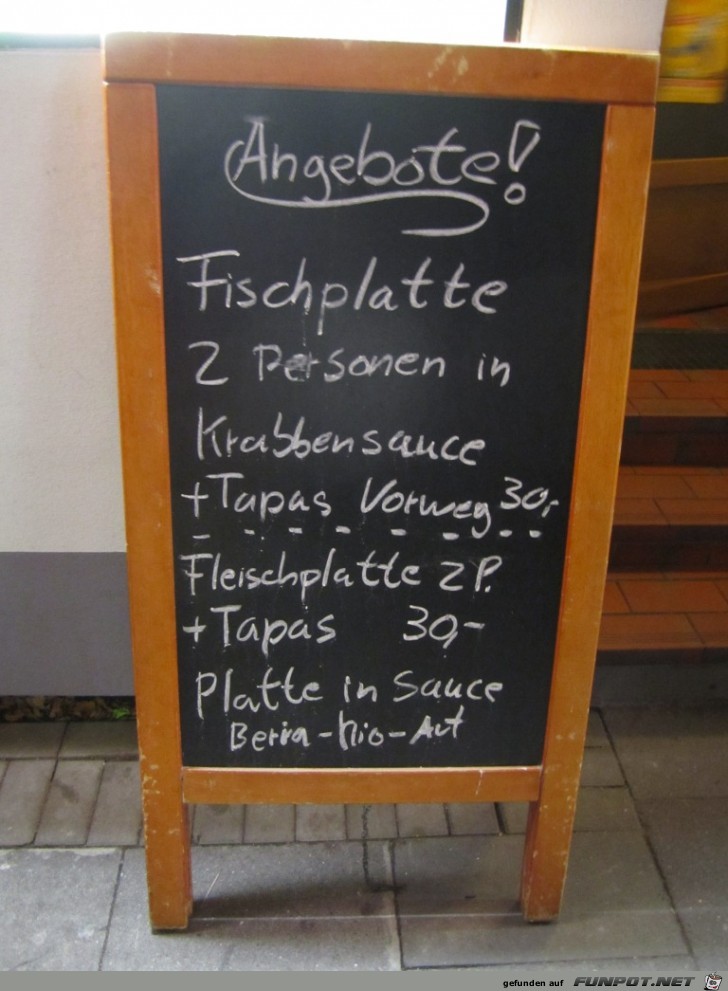 Angebote!
Fischplatte
2 Personen in
Krabbensauce
+Tapas Vorweg 30,-
Fleischplatte 2P.
+Tapas 30,-
Platte in Sauce
-Art
gefunden auf FUNPOT.NET